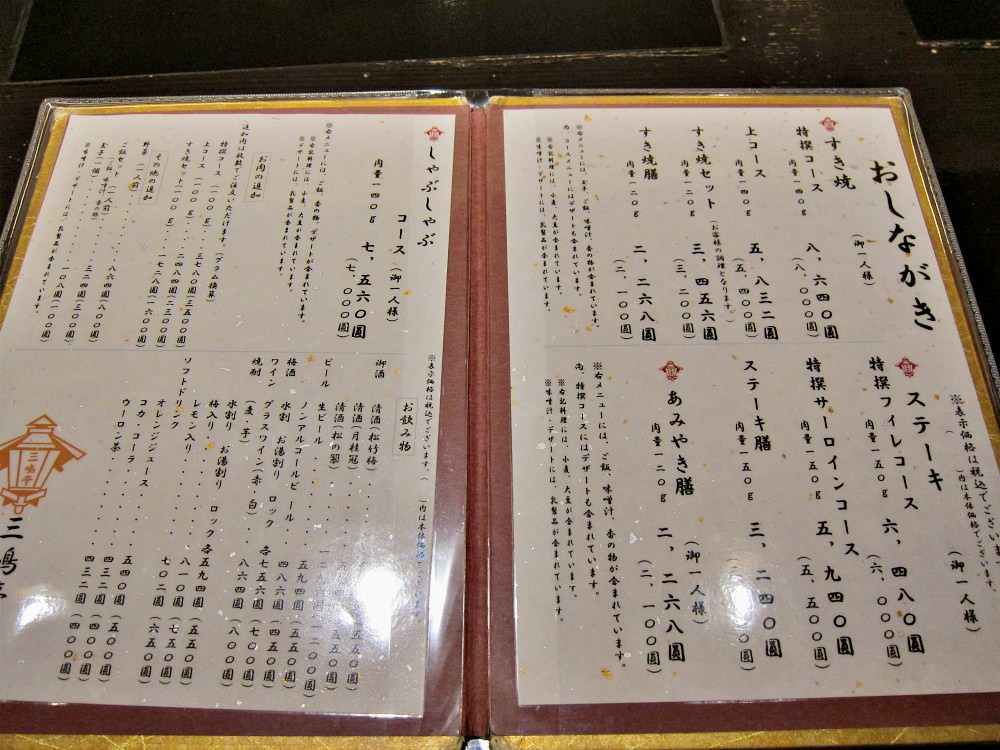 おしながき
すき焼
(御一人様)
特撰コース
肉量一四〇g
八、六四〇圓
(八、〇〇〇圓)
上コース
肉量一四〇g
五、八三二圓
すき焼セット
(お客様の調理となります。)
肉量一二〇g
三、四五六圓
(三、二〇〇圓)
すき焼膳
肉量一二〇g
二、二六八圓
(二、一〇〇圓)
※右メニューには、玉子、ご飯、味噌汁、香の物が含まれています。
尚、コースメニューにはデザートも含まれています。
※右記料理には、小麦、大豆が含まれています。
※味噌汁、デザートには、乳製品が含まれています。
※表示価格は税込でございます。
( )内は本体価格でございます。
ステーキ
(御一人様)
特撰フィレコース
肉量一五〇g
六、四八〇圓
(六、〇〇〇圓)
特撰サーロインコース
肉量一五〇g
五、九四〇圓
(五、五〇〇圓)
ステーキ膳
肉量一五〇g
三、二四〇圓
あみやき膳
(御一人様)
肉量一二〇g
二、二六八圓
(二、一〇〇圓)
※右メニューには、ご飯、味噌汁、香の物が含まれています。
尚、特撰コースにはデザートも含まれています。
※右記料理には、小麦、大豆が含まれています。
※味噌汁、デザートには、乳製品が含まれています。
しゃぶしゃぶ
コース
(御一人様)
肉量一四〇g
七、五六〇圓
(七、〇〇〇圓)
※右メニューには、ご飯、香の物、デザートが含まれています。
※右記料理には、小麦、大豆が含まれています。
※デザートには、乳製品が含まれています。
お肉の追加
追加肉は枚数でご注文いただけます。(グラム換算)
特撰コース (一〇〇g) 三七八〇圓(三五〇〇圓)
上コース (一〇〇g) 二四八四圓(二三〇〇圓)
すき焼セット(一〇〇g) 一七二八圓(一六〇〇圓)
その他の追加
野菜 (一人前) 八六四圓(八〇〇圓)
ご飯セット (一人前) 三二四圓(三〇〇圓)
(ご飯、味噌汁、香の物)
玉子(一個) 一〇八圓(一〇〇圓)
※味噌汁、デザートには、乳製品が含まれています。
※表示価格は税込でございます。
( )内は本体価格でございます。
お飲み物
御酒
清酒(松竹梅)
清酒(月桂冠)
清酒(松の翠)
ビール
生ビール
ノンアルコールビール 五九四圓
梅酒
水割 お湯割り ロック 四八六圓(四五〇圓)
ワイン
グラスワイン(赤・白) 各七五六圓(七〇〇圓)
焼酎
(麦・芋) 八六四圓(八〇〇圓)
水割り お湯割り ロック 各五九四圓(五五〇圓)
梅入り
レモン入り 八一〇圓(七五〇圓)
ソフトドリンク
オレンジジュース 七〇二圓(六五〇圓)
コカ・コーラ 五四〇圓(五〇〇圓)
ウーロン茶 四三二圓(四〇〇圓)
三嶋亭
三嶋亭